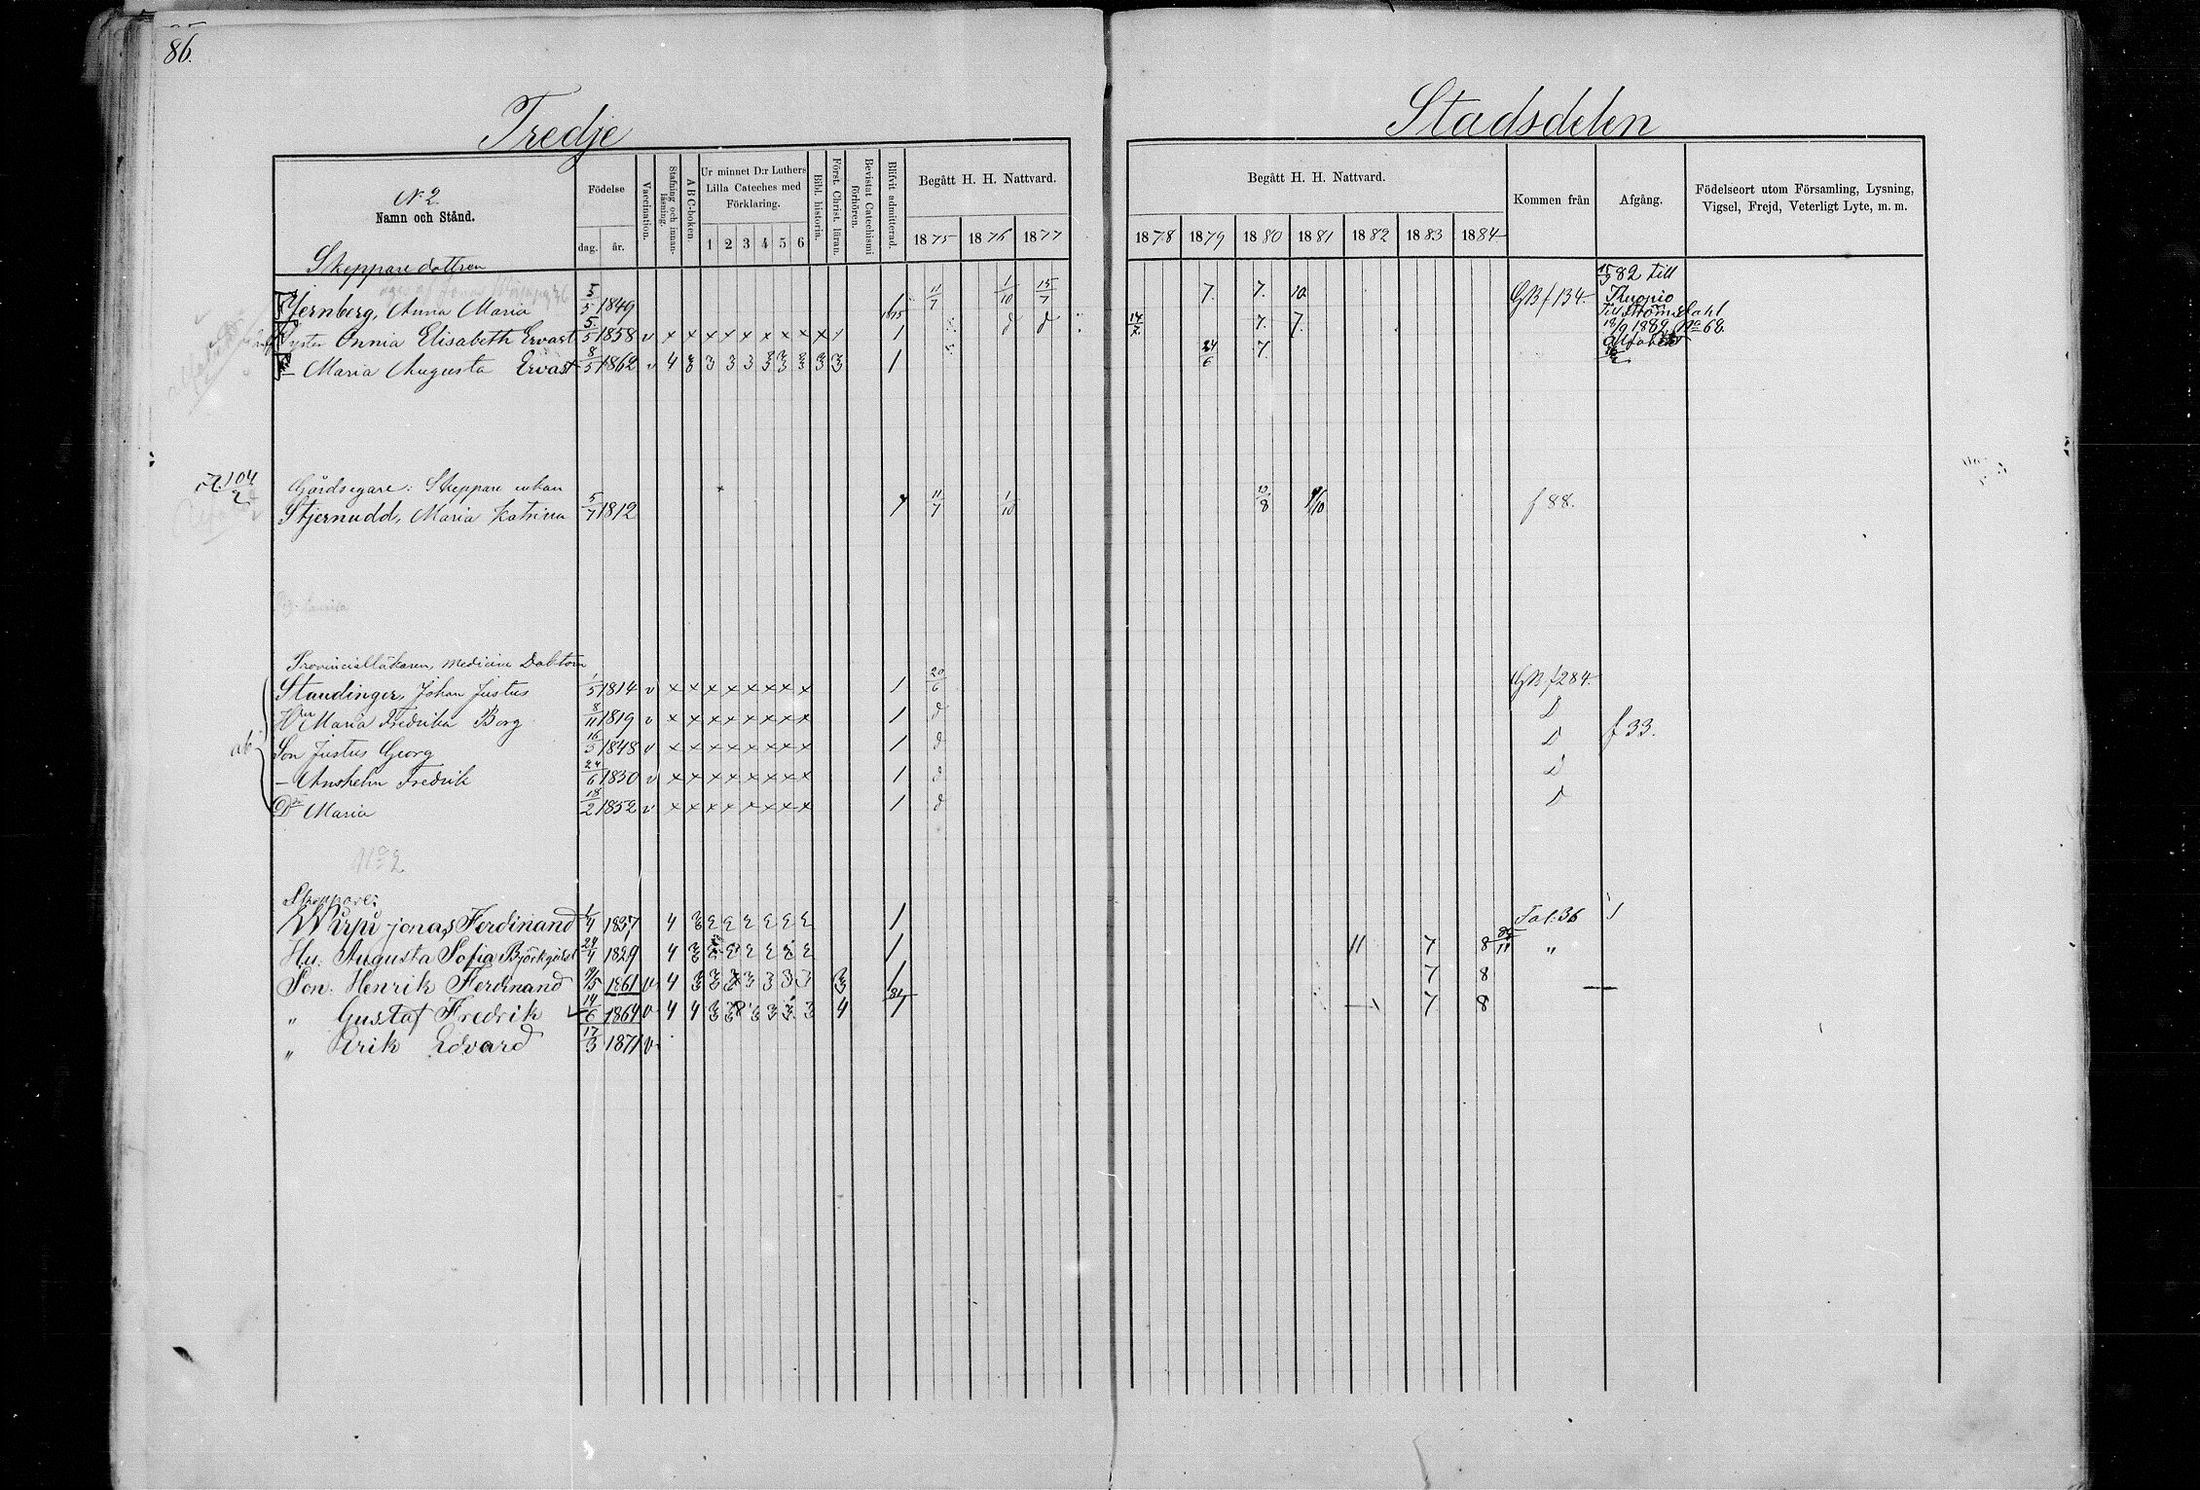 86.
Tredje Stadsdelen
N:2.
Namn och Stånd.
Födelse
dag. år.
Vaccination.
Stafning och innanläsning.
A B C-boken.
Ur minnet D:r Luthers Lilla Cateches med Förklaring.
1 2 3 4 5 6
Bibl. historia.
Först. Christ. läran.
Bevistat Catechismi förhören.
Blifvit admitterad.
Begått H. H. Nattvard.
1875 1876 1877
Begått H. H. Nattvard.
1878 1879 1880 1881 1882 1883 1884
Kommen från
Afgång.
Födelseort utom Församling, Lysning, Vigsel, Frejd, Veterligt Lyte, m. m.
Skeppare dottren
Anna Maria 5/5 1849 11/7 1/10 15/7 7. 7. 10. GB f 134. 82 till Kuopio
Elisabeth Ervast 5/5 1858 v x x x x x x x x x 1 1 d d 14/7. 7. 7. 1882 No 68.
— Maria Augusta Ervast 8/5 1862 v 4 3 3 3 3 3 3 3 3 3 1 24/6 7
Gårdsegare: Skeppare enkan
Stjernudd, Maria Katrina 5/7 1812 11/7 1/10 13/8 9/10 f 88.
Provincialläkaren, Medicine Doktorn
Staudinger, Johan Justus 1/5 1814 v x x x x x x x x 1 20/6 GB f 284.
H:u Maria Fredrika Borg 8/11 1819 v x x x x x x x x 1 d D
Son Justus Georg 16/5 1848 v x x x x x x x x 1 d D f 33.
— Anshelm Fredrik 24/6 1850 v x x x x x x x x 1 d D
D:r Maria 18/2 1852 v x x x x x x x x 1 d D
No 2
Skeppare:
Jonas Ferdinand 1/4 1837 4 1 Fol: 36
Hu. Augusta Sofia Björkqvist 24/4 1829 4 1 11 7 8 "
Son. Henrik Ferdinand 1861 v 4 3 3 3 3 3 3 3 1 7 8
" Gustaf Fredrik 14/6 1864 v 4 4 3 3 3 3 3 4 7 8
" Erik Edvard 17/3 1871 v